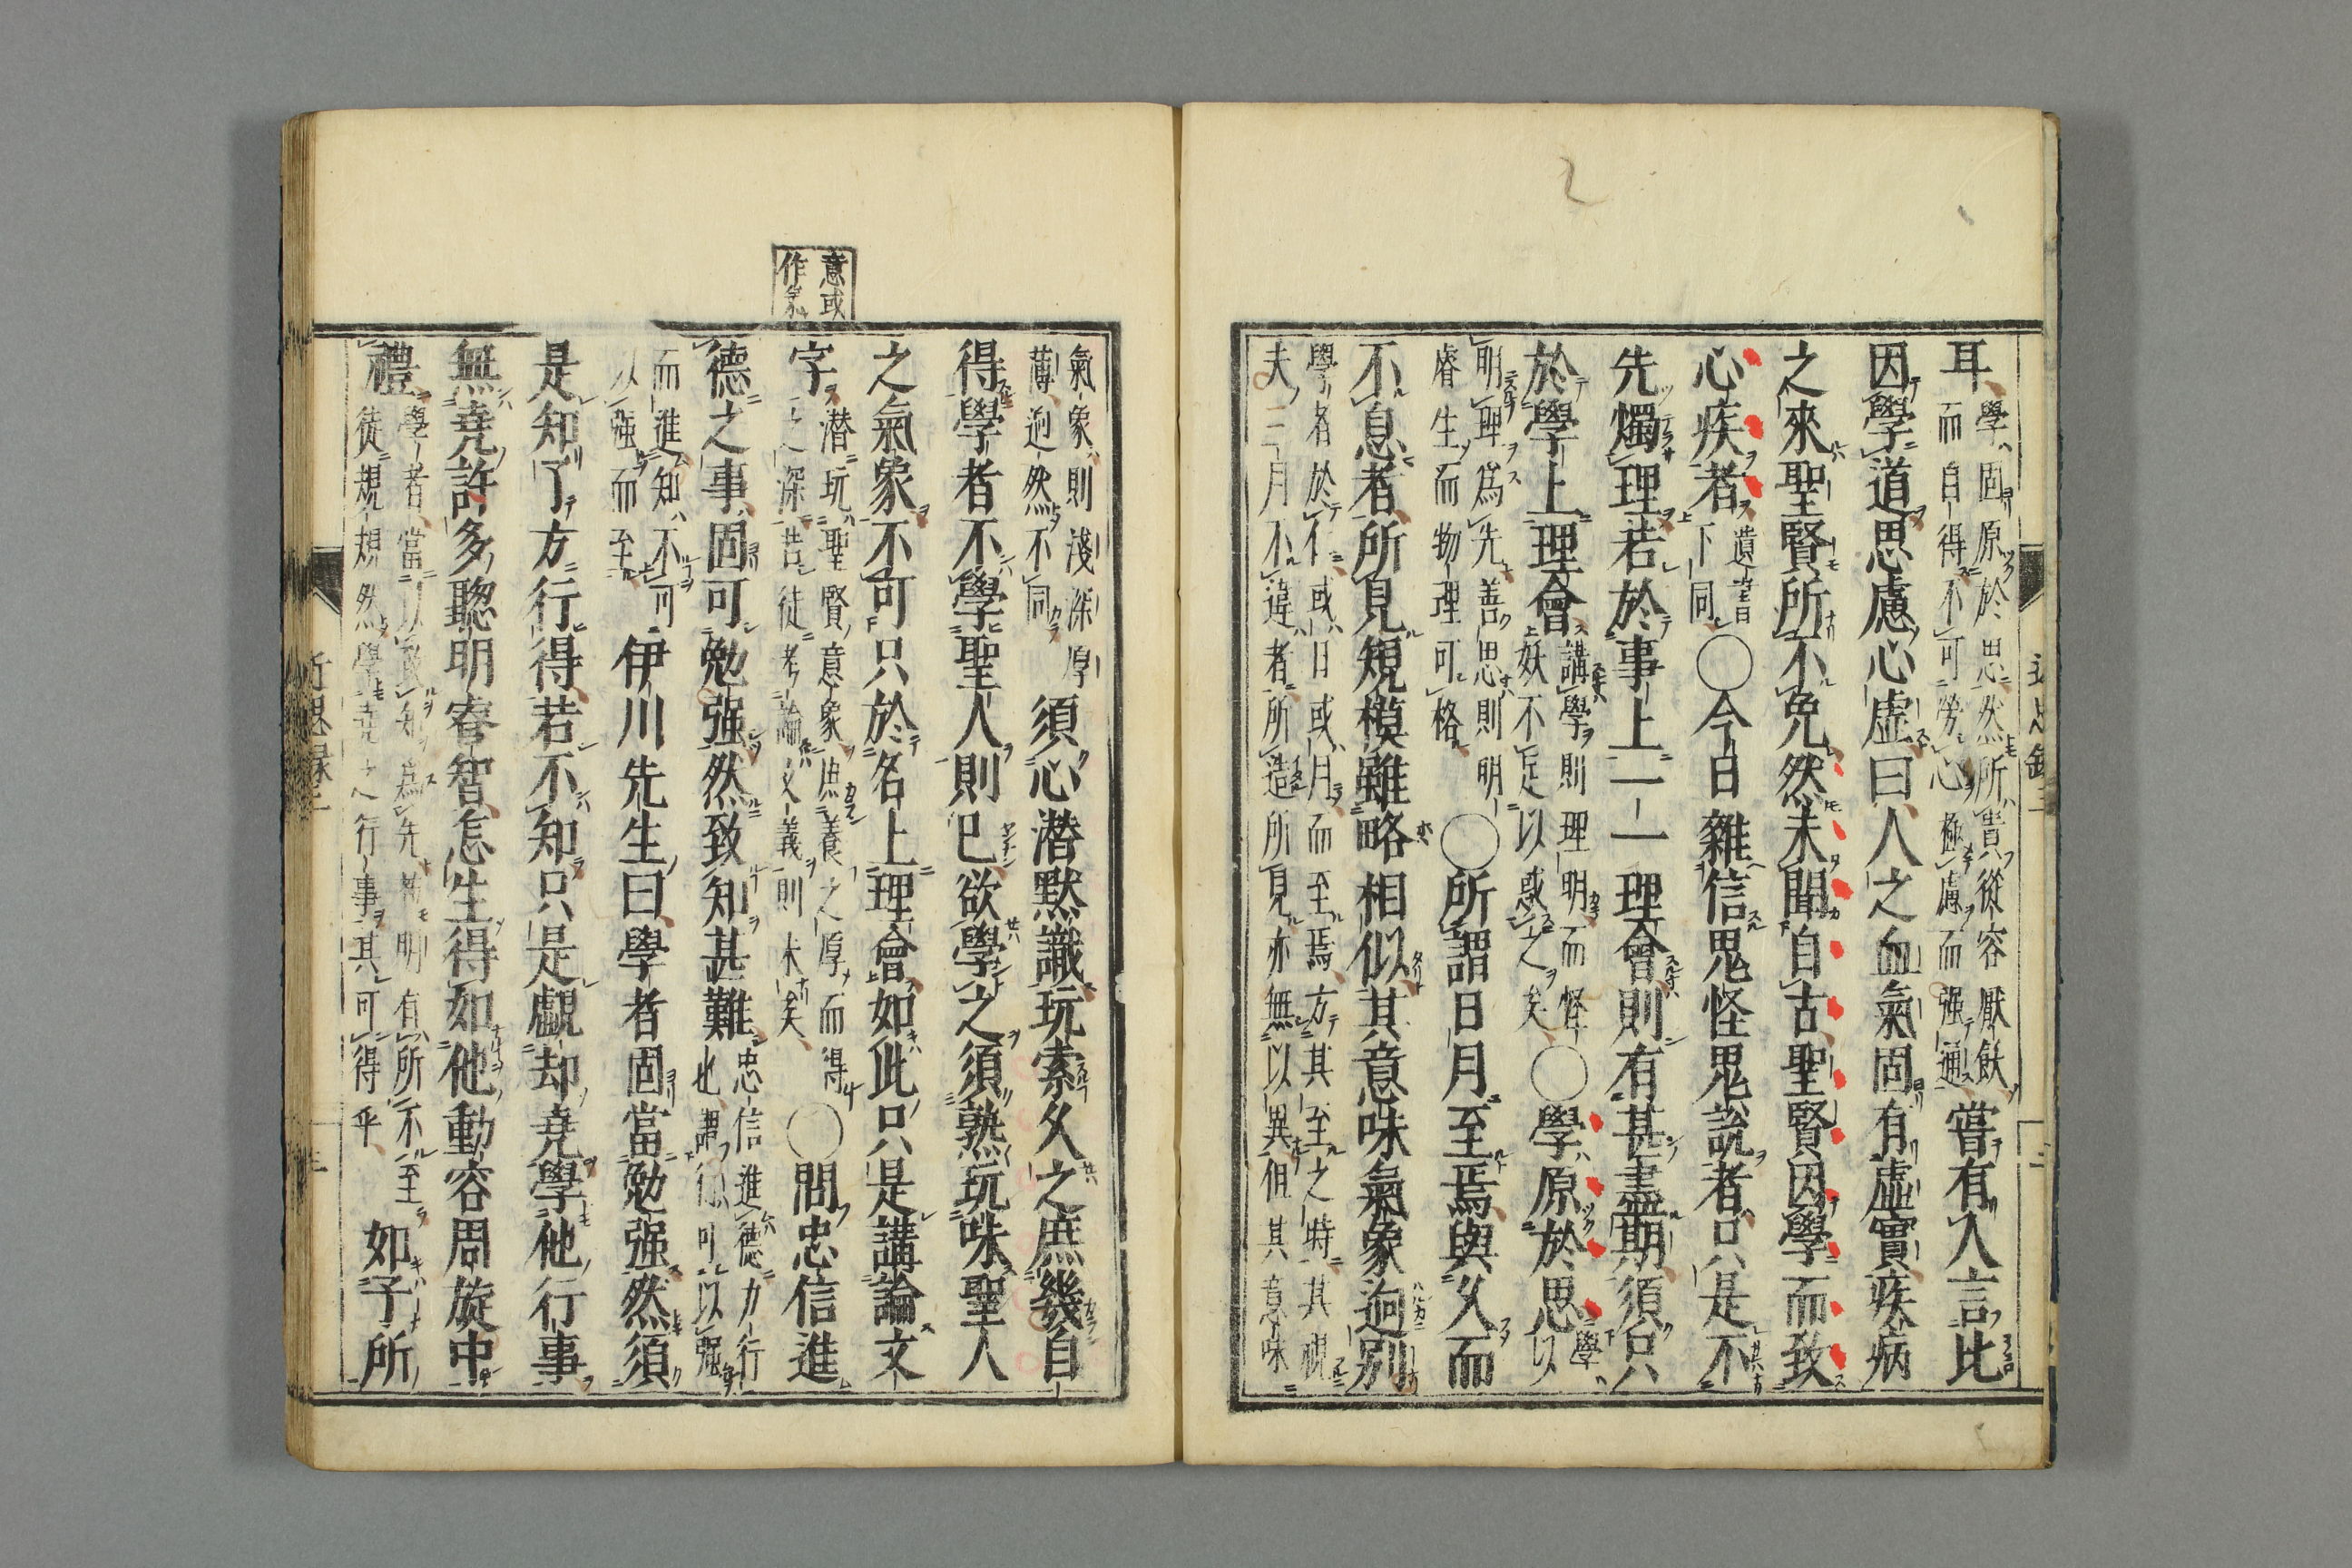 耳學固原於思然所貴從容厭飫
而自得不可勞心極慮而强通
嘗有人言比
因學道思慮心虛曰人之血氣固有虛實疾病
之來聖賢所不免然未聞自古聖賢因學而致
心疾者遺書
下同
○今日雜信鬼怪鬼說者只是不
先燭理若於事上一一理會則有甚盡期須只
於學上理會講學則理明而怪
妖不足以惑之矣
○學原於思學
以
明理爲先善思則明
睿生而物理可格
○所謂日月至焉與久而
不息者所見規模雖略相似其意味氣象逈別
學者於仁或日或月而至焉方其至之時其視
夫三月不違者所造所見亦無以異但其意味
氣象則淺深厚
薄逈然不同
須心潛默識玩索久之庶幾自
得學者不學聖人則已欲學之須熟玩味聖人
之氣象不可只於名上理會如此只是講論文
意或
作氣
字潛玩聖賢意象庶養之厚而得
之深若徒考論文義則末矣
○問忠信進
德之事固可勉强然致知甚難忠信進德力行
也謂行可以强
而進知不可
以强而至
伊川先生曰學者固當勉强然須
是知了方行得若不知只是覷却堯學他行事
無堯許多聰明睿智怎生得如他動容周旋中
禮學者當以致知爲先苟明有所不至
徒規規然學堯之行事其可得乎
如子所
近思録三